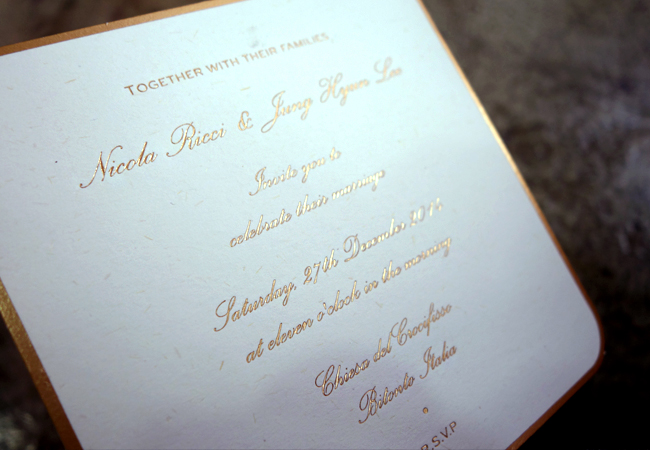 TOGETHER WITH THEIR FAMILIES
Nicola Ricci & Jung Hyun Lee
Invite you to
celebrate their marriage
Saturday, 27th December 2014
at eleven o'clock in the morning
Chiesa del Crocifisso
Bitonto Italia
R.S.V.P